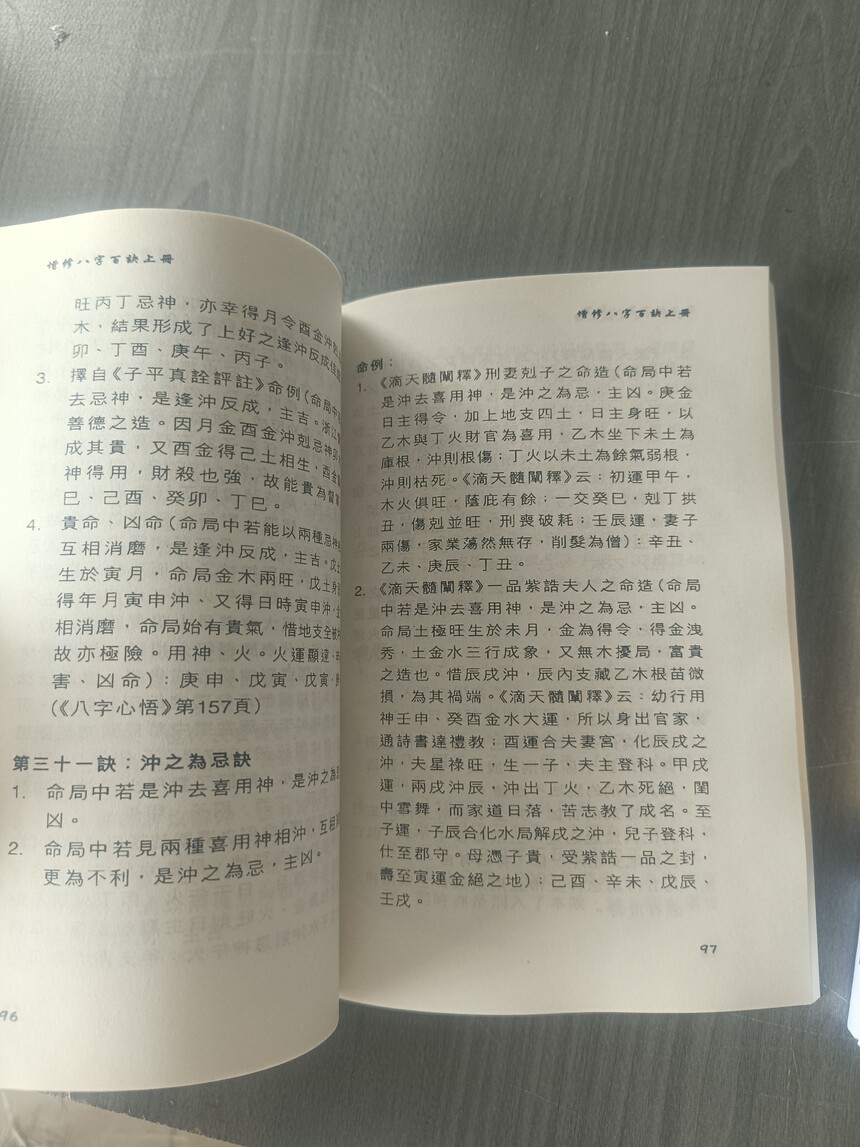 增修八字百訣上冊
旺丙丁忌神，亦幸得月令酉金沖
木，結果形成了上好之逢沖反成佳
卯、丁酉、庚午、丙子。
3. 擇自《子平真詮評註》命例（命局中
去忌神，是逢沖反成，主吉。浙江
善德之造。因月金酉金沖剋忌神卯
成其貴，又酉金得己土相生，酉金
神得用，財殺也強，故能貴為督
巳、己酉、癸卯、丁巳。
4. 貴命、凶命（命局中若能以兩種忌神
互相消磨，是逢沖反成，主吉。戊土
生於寅月，命局金木兩旺，戊土身
得年月寅申沖、又得日時寅申沖，
相消磨，命局始有貴氣，惜地支全
故亦極險。用神、火。火運顯達、
害、凶命）：庚申、戊寅、戊寅、
（《八字心悟》第157頁）
第三十一訣：沖之為忌訣
1. 命局中若是沖去喜用神，是沖之為
凶。
2. 命局中若見兩種喜用神相沖，互相
更為不利，是沖之為忌，主凶。
96
增修八字百訣上冊
命例：
1. 《滴天髓闡釋》刑妻剋子之命造（命局中若
是沖去喜用神，是沖之為忌，主凶。庚金
日主得令，加上地支四土，日主身旺，以
乙木與丁火財官為喜用，乙木坐下未土為
庫根，沖則根傷；丁火以未土為餘氣弱根，
沖則枯死。《滴天髓闡釋》云：初運甲午，
木火俱旺，蔭庇有餘；一交癸巳，剋丁拱
丑，傷剋並旺，刑喪破耗；壬辰運，妻子
兩傷，家業蕩然無存，削髮為僧）：辛丑、
乙未、庚辰、丁丑。
2. 《滴天髓闡釋》一品紫誥夫人之命造（命局
中若是沖去喜用神，是沖之為忌，主凶。
命局土極旺生於未月，金為得令，得金洩
秀，土金水三行成象，又無木擾局，富貴
之造也。惜辰戌沖，辰內支藏乙木根苗微
損，為其禍端。《滴天髓闡釋》云：幼行用
神壬申、癸酉金水大運，所以身出官家，
通詩書達禮教；酉運合夫妻宮，化辰戌之
沖，夫星祿旺，生一子，夫主登科。甲戌
運，兩戌沖辰，沖出丁火，乙木死絕，閨
中雪舞，而家道日落，苦志教了成名。至
子運，子辰合化水局解戌之沖，兒子登科，
仕至郡守。母憑子貴，受紫誥一品之封，
壽至寅運金絕之地）；己酉、辛未、戊辰、
壬戌。
97